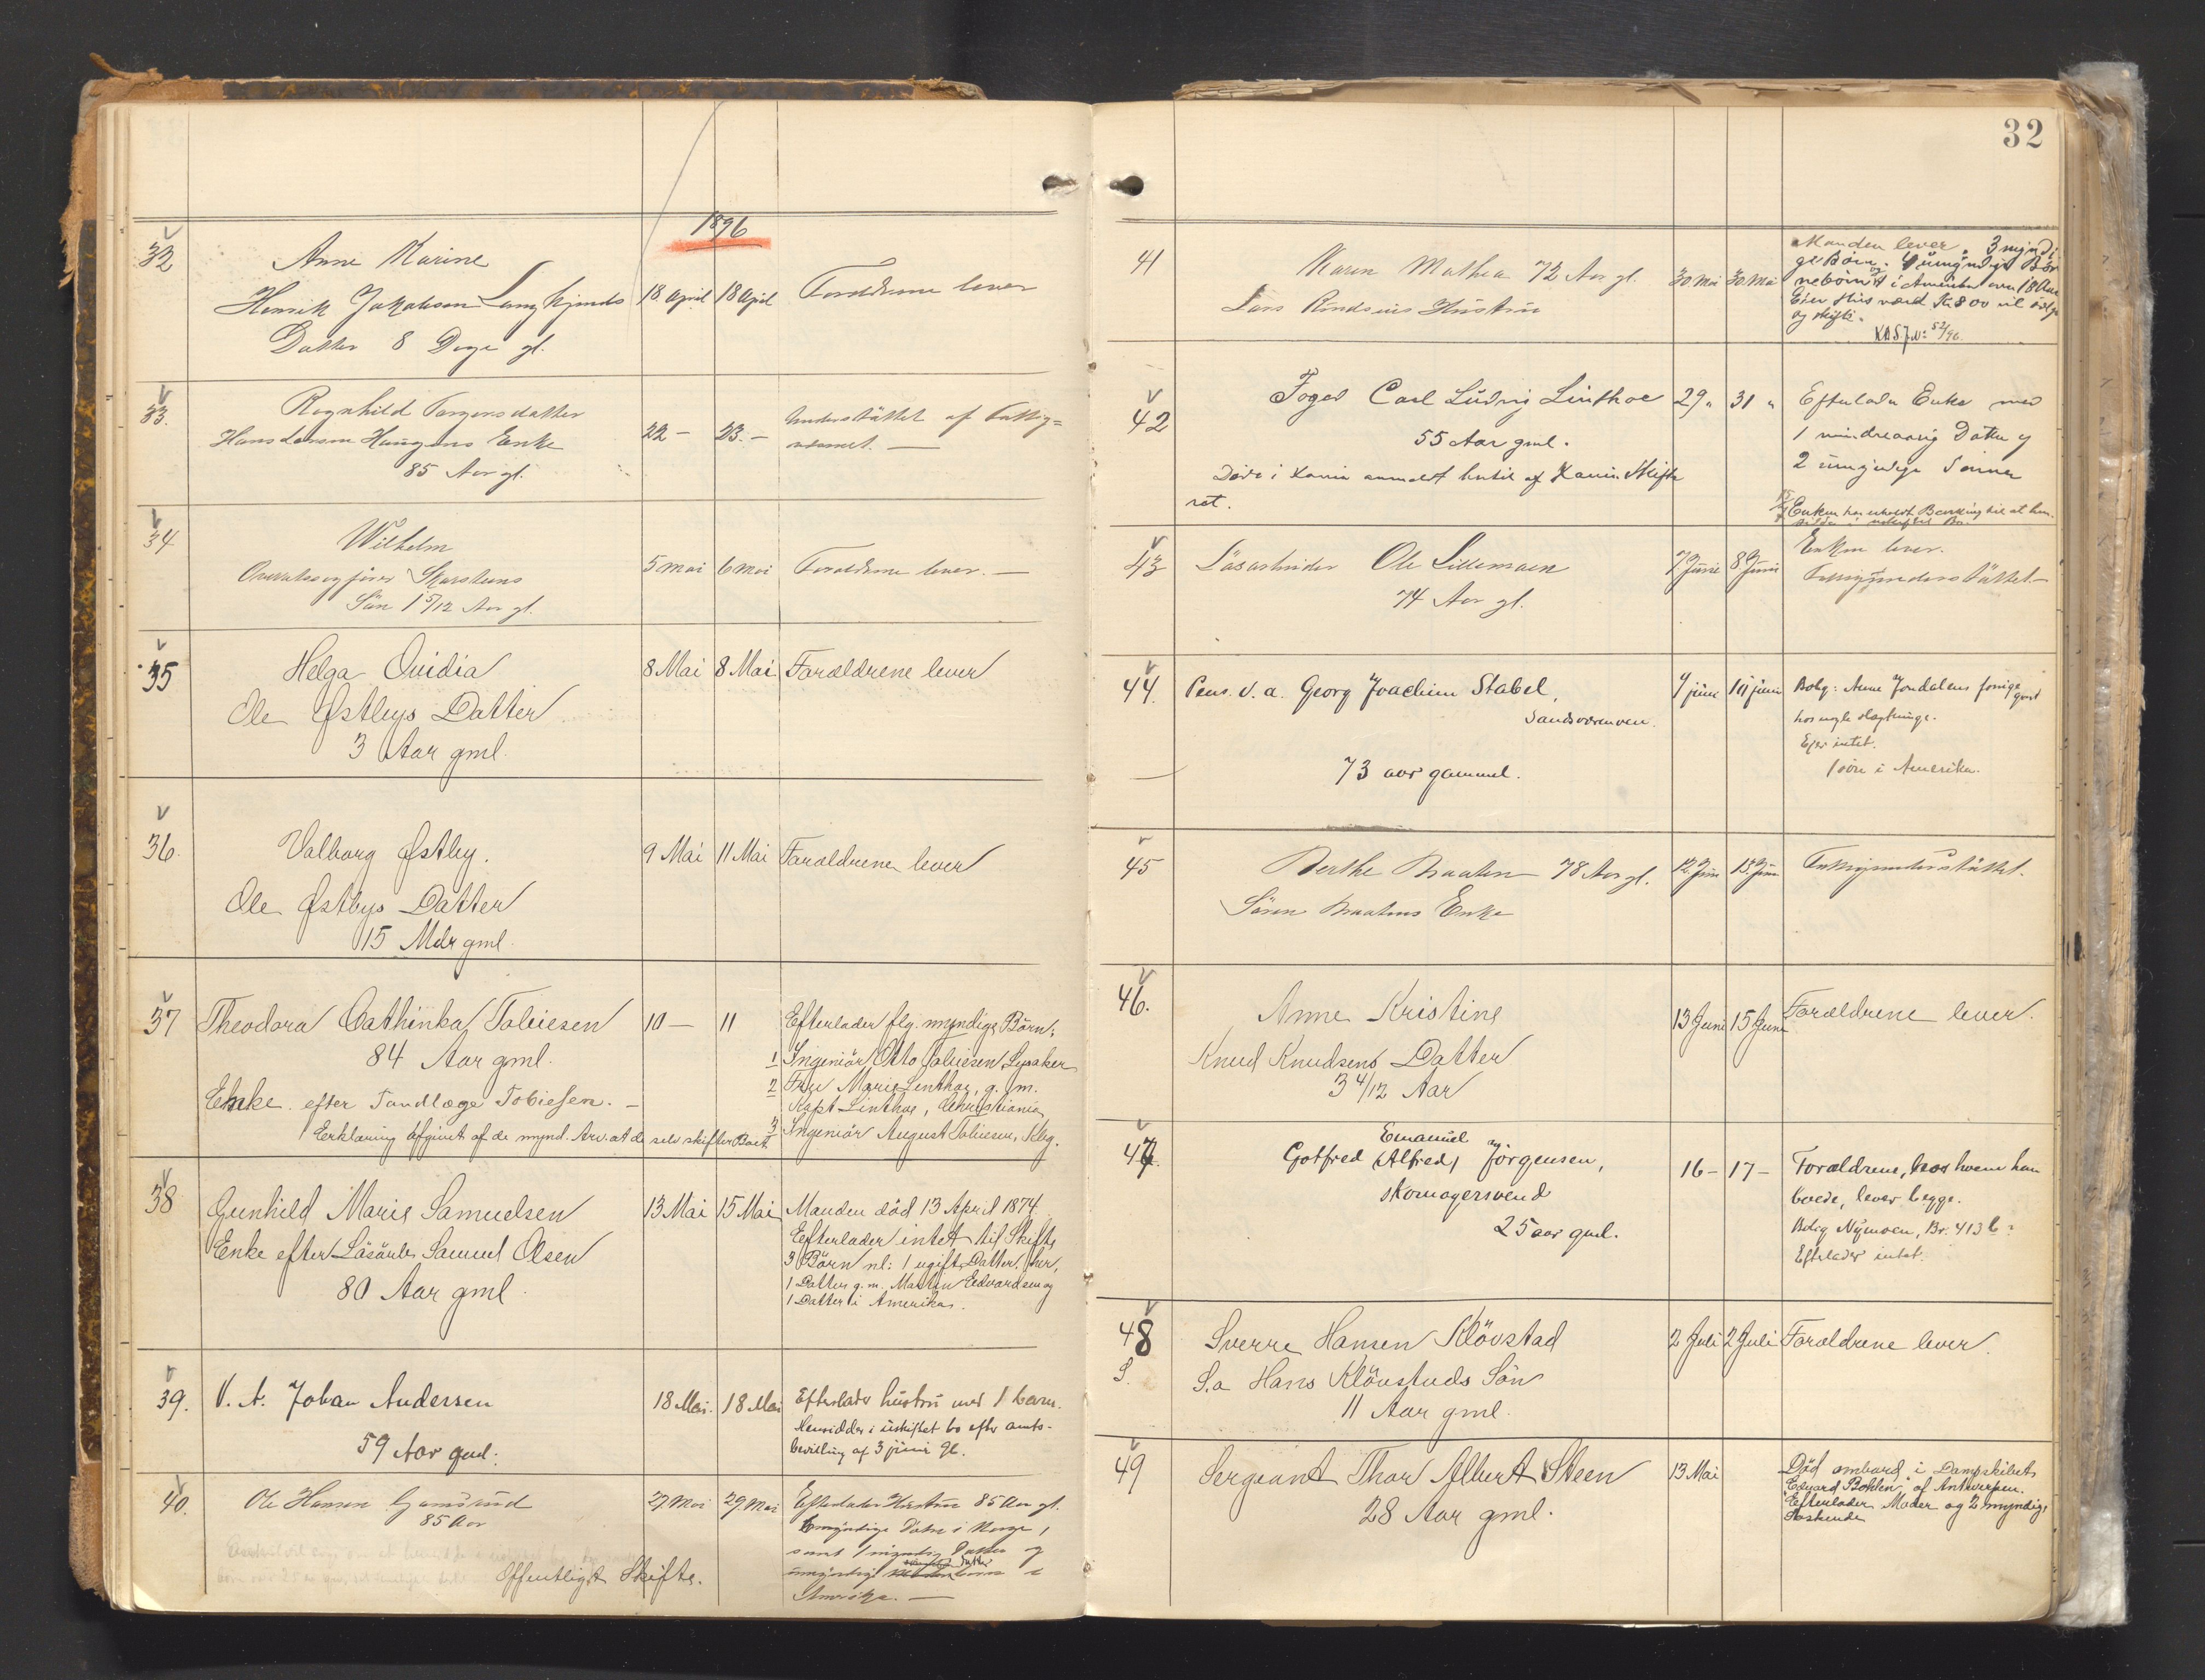 1896
32
Anne Karine
Henrik Jakobsen Langkjends
Datter 8 Dage gl.
18 April
18 April
Forældrene lever
33.
Ragnhild Torgersdatter
Hans Larsen Haugens Enke
85 Aar gl.
22 -
23. -
Understøttet af Fattig=
væsenet. —
34
Wilhelm
Overretssagfører Skarsteens
Sön 1 5/12 Aar gl.
5 Mai
6 Mai
Forældrene lever. —
35
Helga Ovidia
Ole Østbys Datter
3 Aar gml.
8 Mai
8 Mai
Forældrene lever
36.
Valborg Østby.
Ole Østbys Datter
15 Mdr gml.
9 Mai
11 Mai
Forældrene lever
37
Theodora Cathinka Tobiesen
84 Aar gml.
Enke efter Tandlæge Tobiesen. —
Erklæring afgivet af de mynd. Arv. at de selv skifter Boet
10 —
11
Efterlader flg. myndige Börn:
1 Ingeniör Otto Tobiesen, Lysaker
2 Fru Marie Linthoe, g. m.
Kapt Linthoe, Christiania
3 Ingeniör August Tobiesen, Kbg.
38
Gunhild Marie Samuelsen
Enke efter Lösarb. Samuel Olsen
80 Aar gml.
13 Mai
15 Mai
Manden död 13 April 1874.
Efterlader intet til Skifte
3 Börn nl: 1 ugift Datter, her,
1 Datter g. m. Martin Edvardsen og
1 Datter i Amerika.
39.
V. A. Johan Andersen
59 Aar gml.
18 Mai.
18 Mai
Efterlader hustru med 1 barn.
Hensidder i uskiftet bo efter amts-
bevilling af 3 juni 96.
40.
Ole Hansen Gamsrud
85 Aar
Offentligt Skifte.
27 Mai
29. Mai
Efterlader Hustru 85 Aar gl.
myndige Döttre i Norge,
samt 1 myndig Datter og
umyndige
Amerika. —
32
41
Karen Mathea 72 Aar gl.
Lars Hustru
30 Mai
30 Mai
Manden lever. 3 myndi
ge Börn. 4 umyndige Bör
nebörn i Amerika over 18 Aar
Eier Hus værd Kr 800 vil
og skifte.
52/96.
42
Foged Carl Ludvig Linthoe
55 Aar gml.
Döde i Xania anmeldt hertil af Xania Skifte
ret.
29 "
31 "
Efterlader Enke med
1 mindreaarig Datter og
2 umyndige Sönner
Enken har erholdt Bevilling til at hen-
sidde i uskiftet Bo.
43
Lösarbeider Ole Lillemoen
74 Aar gl.
7 Juni
8 Juni
Enken lever.
Fattigunderstöttet. —
44.
Pens. V. a. Georg Joachim Stabel,
Sandsværveien.
73 aar gammel.
9 juni
10 juni
Bolig: Anne Jondalens forrige gaard
hos nogle slægtninge.
Ejer intet.
1 sön i Amerika.
45
Berthe Braaten 78 Aar gl.
Sören Braatens Enke
12. Juni
13. Juni
Fattigunderstöttet.
46.
Anne Kristine
Knud Knudsens Datter
3 4/12 Aar
13 Juni
15 Juni
Forældrene lever.
47.
Emanuel
Gotfred (Alfred) Jörgensen,
skomagersvend
25 aar gml.
16 -
17 -
Forældrene, hos hvem han
boede, lever begge.
Bolig Nymoen, Br. 413 b.
Efterlader intet.
48
S.
Sverre Hansen Klövstad
S.a Hans Klövstads Sön
11 Aar gml.
2 Juli
2 Juli
Forældrene lever.
49
Sergeant Thor Albert Steen
28 Aar gml.
13 Mai
Död ombord i Dampskibet
Eduard Bohlen af Antwerpen.
Efterlader Moder og 2 myndige
Söskende